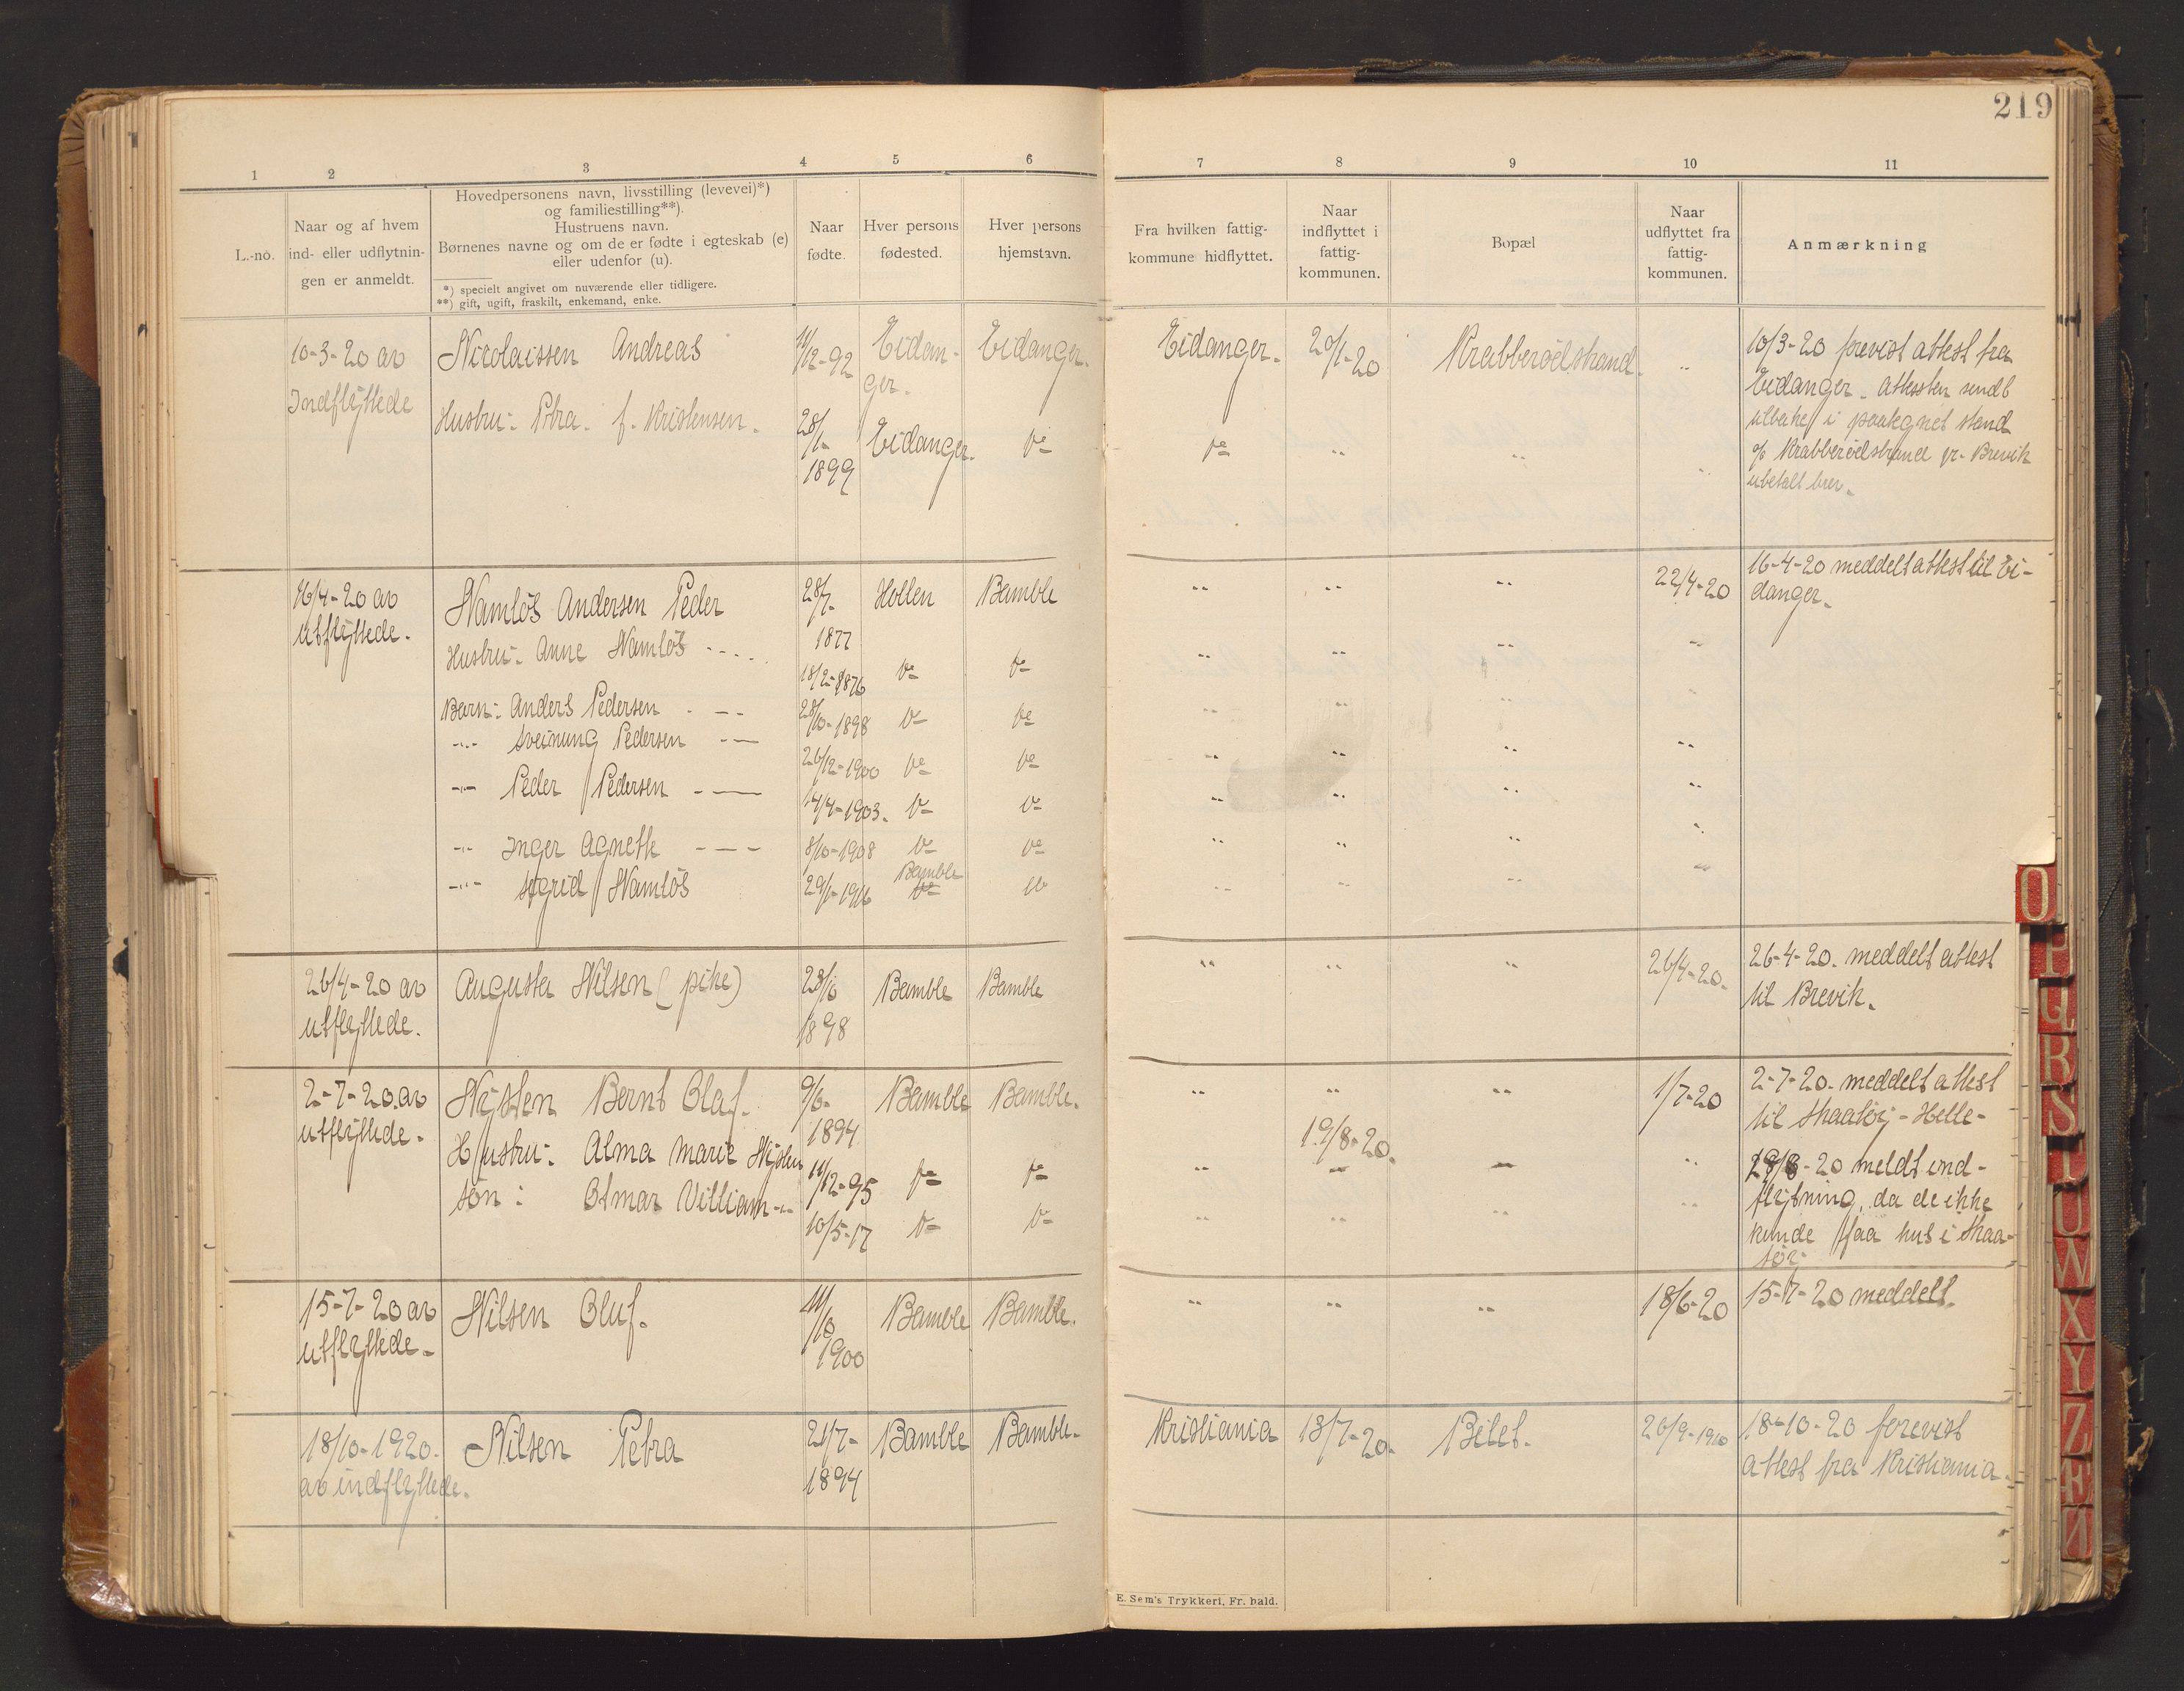 219
1 2 3 4 5 6 7 8 9 10 11
L.-no.
Naar og af hvem
ind- eller udflytnin-
gen er anmeldt.
Hovedpersonens navn, livsstilling (levevei)*)
og familiestilling**).
Hustruens navn.
Børnenes navne og om de er fødte i egteskab (e)
eller udenfor (u).
*) specielt angivet om nuværende eller tidligere.
**) gift, ugift, fraskilt, enkemand, enke.
Naar
fødte.
Hver persons
fødested.
Hver persons
hjemstavn.
Fra hvilken fattig-
kommune hidflyttet.
Naar
indflyttet i
fattig-
kommunen.
Bopæl
Naar
udflyttet fra
fattig-
kommunen.
Anmærkning
10-3-20 av
Indflyttede
Nicolaissen Andreas
Hustru:- Petra. f. Kristensen.
11/12-92
28/1-
1899
Eidan-
ger.
Eidanger.
Eidanger.
do
Eidanger.
do
20/1-20
Krabberødstrand.
10/3-20 previst attest fra
Eidanger. Attesten sendt
tilbake i paategnet stand
% Krabberødstrand pr. Brevik
ubetalt brev.
16/4-20 av
utflyttede.
Namløs Andersen Peder
Hustru:- Anne Namløs - - - -
Barn:- Anders Pedersen - - -
-"- Sveinung Pedersen - -
-"- Peder Pedersen - - -
-"- Inger Agnethe - - -
-"- Sigrid Namløs
28/7-
1877
18/2-1876
28/10-1898
26/12-1900
14/4-1903.
8/10-1908
29/1-1916
Hollen
do
do
do
do
do
Bamble
do
Bamble
do
do
do
do
do
do
22/4-20
16-4-20 meddelt attest til Ei-
danger.
26/4-20 av
utflyttede.
Augusta Nilsen (pike)
23/10
1898
Bamble
Bamble
26/4-20.
26-4-20. meddelt attest
til Brevik.
2-7-20. av
utflyttede.
Nysten Bernt Olaf.
Hustru:- Alma Marie Nysten
Søn: Otmar Villiam -"-
9/6-
1894
11/12-95
10/5-17
Bamble
do
do
Bamble.
do
do
19/8-20.
1/7-20
2-7-20. meddelt attest
til Skaatøy - Helle-
19/8-20 meldt ind-
flytning, da de ikke
kunde faa hus i Skaa-
tøi-
15-7-20 av
utflyttede.
Nilsen Oluf.
11/10
1900
Bamble
Bamble.
18/6-20
15-7-20 meddelt.
18/10-1920.
av indflyttede.
Nilsen Petra
21/7-
1894
Bamble
Bamble.
Kristiania
13/7-20.
Bilet.
20/9-1920
18-10-20 forevist
attest fra Kristiania.
E. Sem's Trykkeri, Fr. hald.
O
P
Q
R
S
T
U
W
X
Y
Z
Æ
Ø